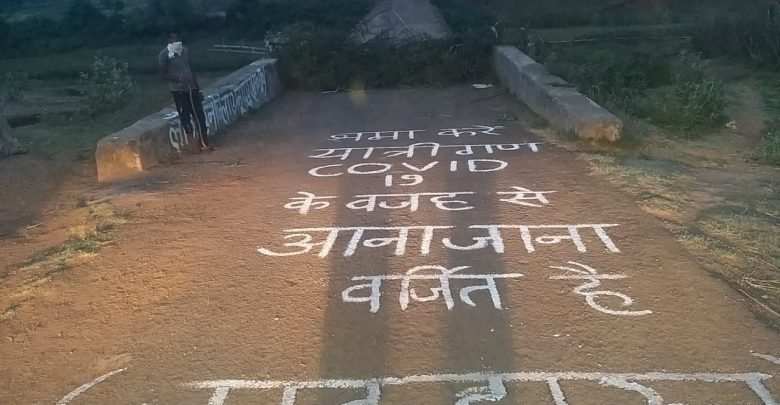 क्षमा करे
यात्री गण
COVID
19
के वजह से
आना जाना
वर्जित है